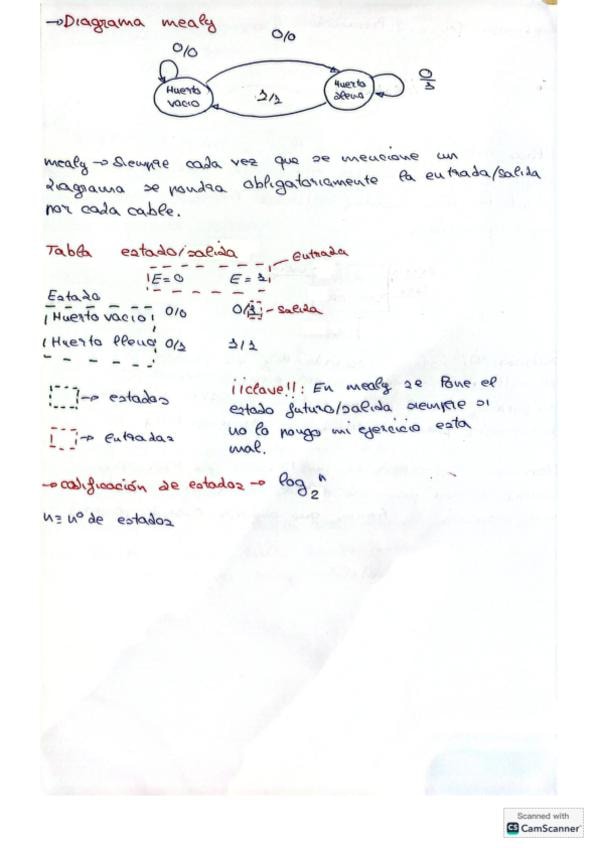 →Diagrama mealy
0/0
0/0
Huerto
vacio
1/1
Huerto
lleno
0
1
mealy → Siempre cada vez que se mencione un
diagrama se pondra obligatoriamente la entrada/salida
por cada cable.
Tabla estado/salida
entrada
E=0 E=1
Estado
Huerto vacio 0/0 0/1 - salida
Huerto lleno 0/1 1/1
→ estados
→ Entradas
¡¡clave!!: En mealy se Pone el
estado futuro/salida siempre si
no lo pongo mi ejercicio esta
mal.
→ codificación de estados → log₂ⁿ
n = nº de estados
Scanned with
CS CamScanner